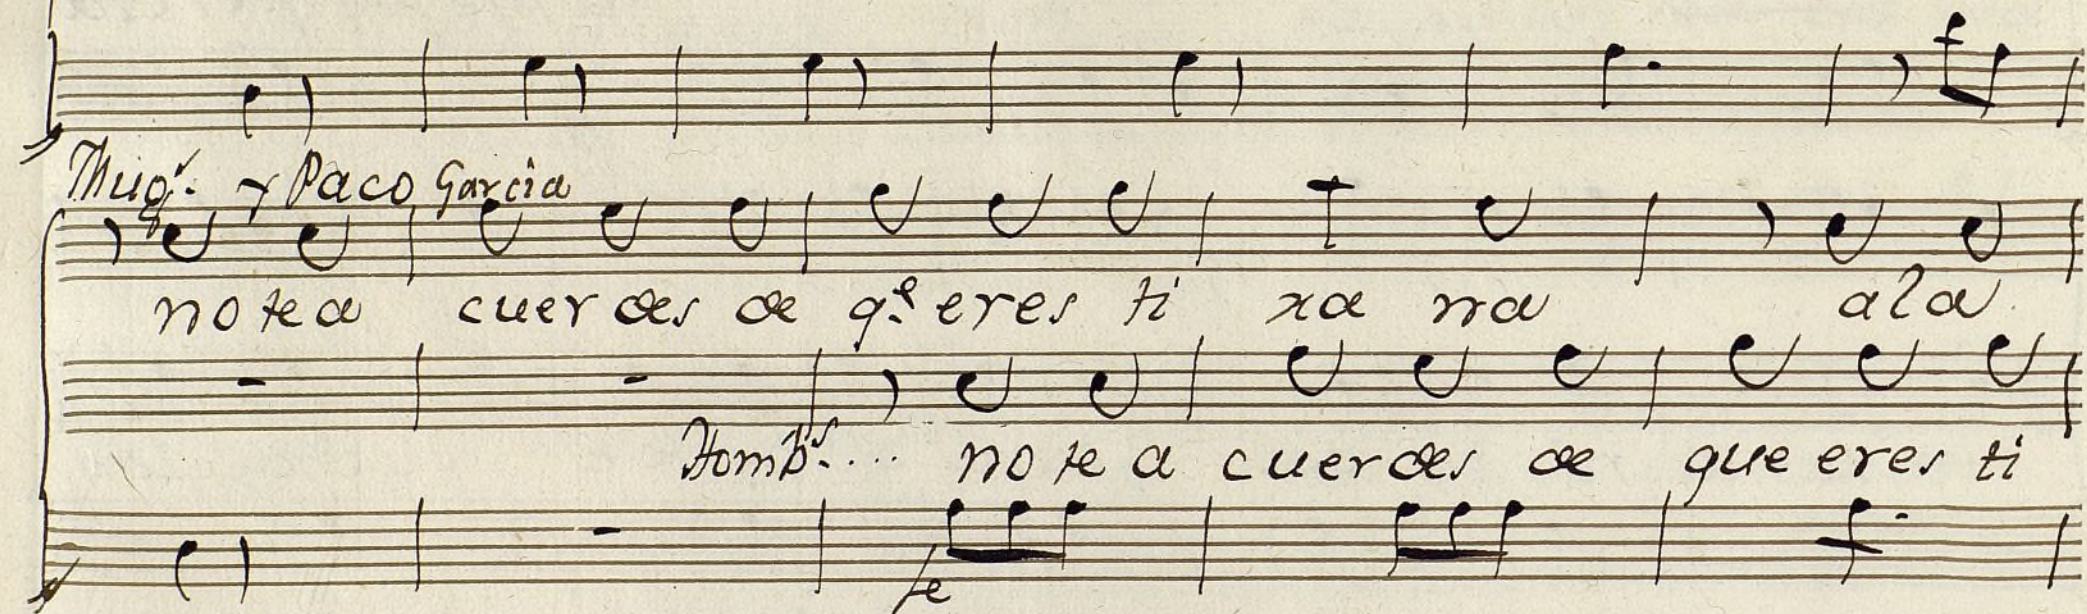 Mug.^s y Paco Garcia
no te a cuer des de q.^e eres ti xa na a la
Homb.^s... no te a cuer des de que eres ti
fe